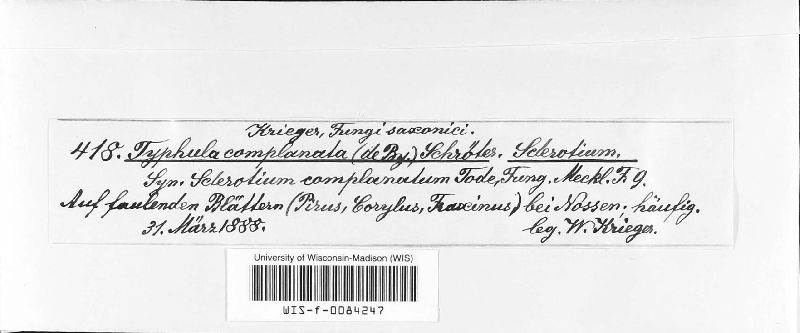 Krieger, Fungi saxonici.
418. Typhula complanata (de By.) Schröter. Sclerotium.
Syn. Sclerotium complanatum Tode, Fung. Meckl. F. 9.
Auf faulenden Blättern (Pirus, Corylus, Fraxinus) bei Nossen, häufig.
31. März 1888. leg. W. Krieger.
University of Wisconsin-Madison (WIS)
WIS-f-0084247